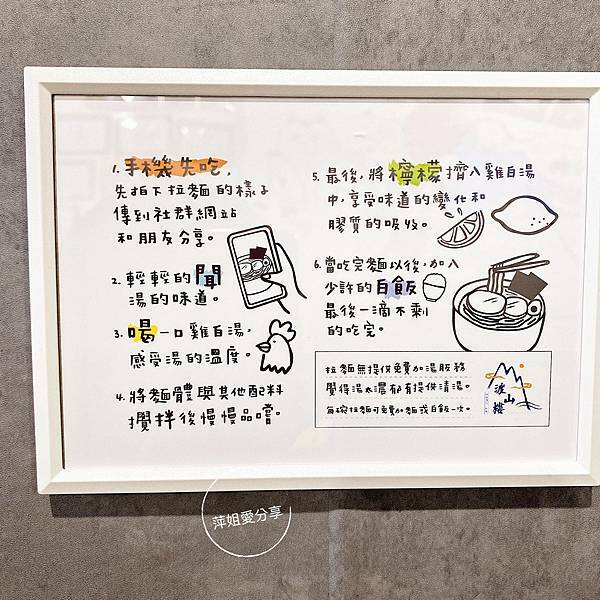 1. 手機先吃,
先拍下拉麵的樣子
傳到社群網站
和朋友分享。
2. 輕輕的聞
湯的味道。
3. 喝一口雞白湯,
感受湯的溫度。
4. 將麵體與其他配料
攪拌後慢慢品嚐。
5. 最後,將檸檬擠入雞白湯
中,享受味道的變化和
膠質的吸收。
6. 當吃完麵以後,加入
少許的白飯
最後一滴不剩
的吃完。
拉麵無提供免費加湯服務
覺得湯太濃郁有提供清湯。
每碗拉麵可免費加麵或白飯一次。
渡山樓
萍姐愛分享